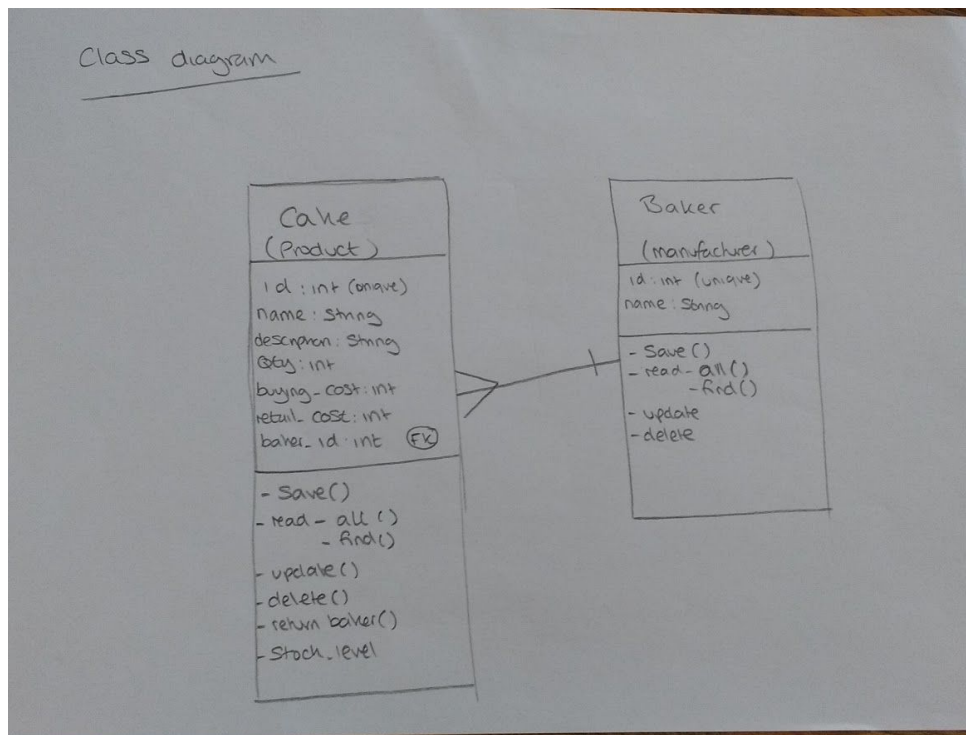 Class diagram
Cake
(Product)
id : int (unique)
name : String
description : String
Qty : int
buying_cost : int
retail_cost : int
baker_id : int FK
- Save()
- read - all()
- find()
- update()
- delete()
- return baker()
- Stock_level
Baker
(manufacturer)
id : int (unique)
name : String
- Save()
- read - all()
- find()
- update
- delete